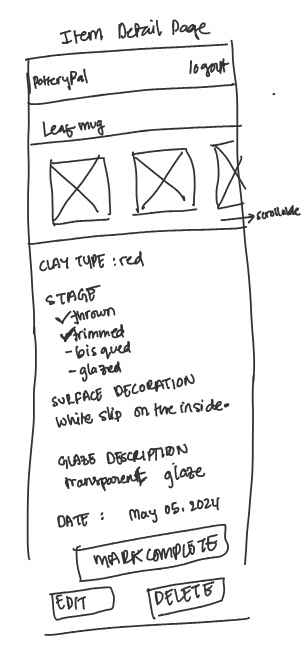 Item Detail Page
PotteryPal logout
Leaf mug
→ scrollable
CLAY TYPE : red
STAGE
✓ thrown
✓ trimmed
- bisqued
- glazed
SURFACE DECORATION
White slip on the inside.
GLAZE DESCRIPTION
transparent glaze
DATE : May 05, 2024
MARK COMPLETE
EDIT DELETE